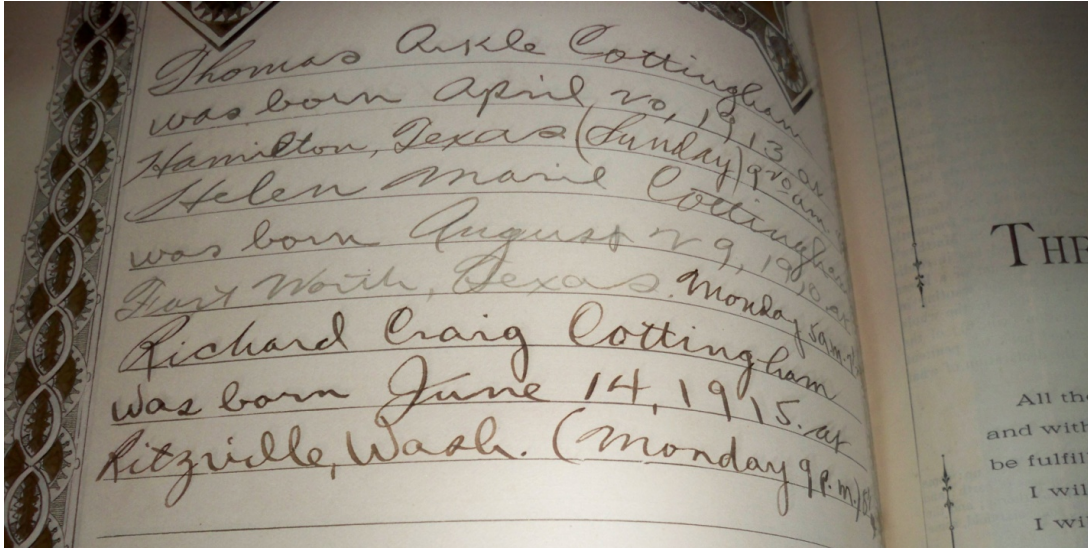 Thomas Arkle Cottingham
was born April 20, 1913 at
Hamilton, Texas (Sunday) 9 20 am
Helen Marie Cottingham
was born August 29, 1910, at
Fort Worth, Texas. Monday 5 a.m.
Richard Craig Cottingham
was born June 14, 1915. at
Ritzville, Wash. (Monday 9 P.m.)
THE
All the
and with
be fulfil
I wil
I wi